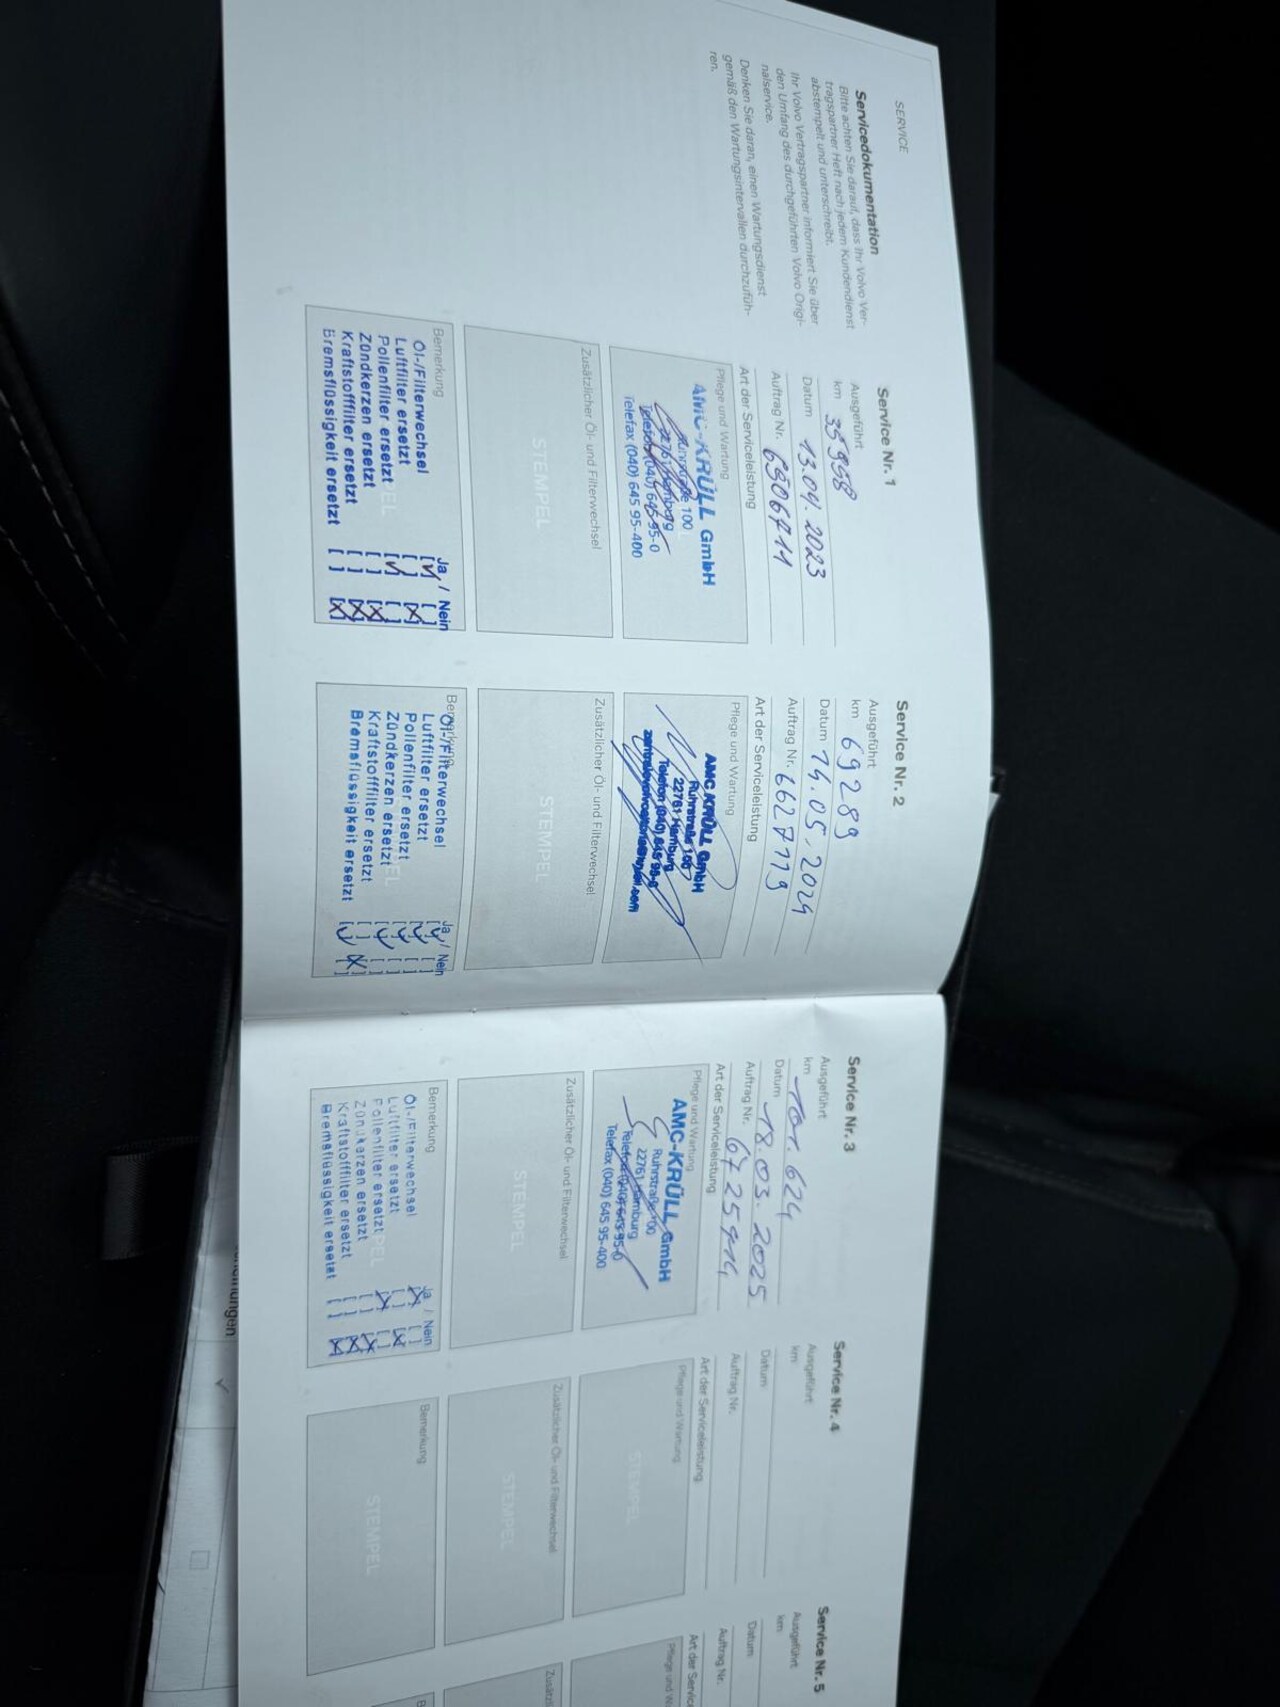 SERVICE
Servicedokumentation
Bitte achten Sie darauf, dass Ihr Volvo Ver-
tragspartner Heft nach jedem Kundendienst
abstempelt und unterschreibt.
Ihr Volvo Vertragspartner informiert Sie über
den Umfang des durchgeführten Volvo Origi-
nalservice.
Denken Sie daran, einen Wartungsdienst
gemäß den Wartungsintervallen durchzufüh-
ren.
Service Nr. 1
Ausgeführt
km 35958
Datum 13.04.2023
Auftrag Nr.
Art der Serviceleistung
Pflege und Wartung
AMC-KRÜLL GmbH
Ruhrstraße 100
22761 Hamburg
Telefon (040) 645 95-0
Telefax (040) 645 95-400
Zusätzlicher Öl- und Filterwechsel
STEMPEL
Bemerkung
Ja / Nein
Öl-/Filterwechsel [✓] [ ]
Luftfilter ersetzt [ ] [X]
Pollenfilter ersetzt [✓] [ ]
Zündkerzen ersetzt [ ] [X]
Kraftstofffilter ersetzt [ ] [X]
Bremsflüssigkeit ersetzt [ ] [X]
Service Nr. 2
Ausgeführt
km 69289
Datum 14.05.2024
Auftrag Nr. 6627119
Art der Serviceleistung
Pflege und Wartung
AMC KRÜLL GmbH
Ruhrstraße 100
22761 Hamburg
Telefon (040) 645 95-0
Zusätzlicher Öl- und Filterwechsel
STEMPEL
Bemerkung
Ja / Nein
Öl-/Filterwechsel [✓] [ ]
Luftfilter ersetzt [✓] [ ]
Pollenfilter ersetzt [✓] [ ]
Zündkerzen ersetzt [✓] [ ]
Kraftstofffilter ersetzt [ ] [X]
Bremsflüssigkeit ersetzt [✓] [ ]
Service Nr. 3
Ausgeführt
km 101.624
Datum 18.03.2025
Auftrag Nr.
Art der Serviceleistung
Pflege und Wartung
AMC-KRÜLL GmbH
Ruhrstraße 100
22761 Hamburg
Telefon (040) 645 95-0
Telefax (040) 645 95-400
Zusätzlicher Öl- und Filterwechsel
STEMPEL
Bemerkung
Ja / Nein
Öl-/Filterwechsel [X] [ ]
Luftfilter ersetzt [ ] [X]
Pollenfilter ersetzt [X] [ ]
Zündkerzen ersetzt [ ] [X]
Kraftstofffilter ersetzt [ ] [X]
Bremsflüssigkeit ersetzt [ ] [X]
Service Nr. 4
Ausgeführt
km
Datum
Auftrag Nr.
Art der Serviceleistung
Pflege und Wartung
STEMPEL
Zusätzlicher Öl- und Filterwechsel
STEMPEL
Bemerkung
STEMPEL
Service Nr. 5
Ausgeführt
km
Datum
Auftrag Nr.
Art der Servic
Pflege und W
Zusätzli
B